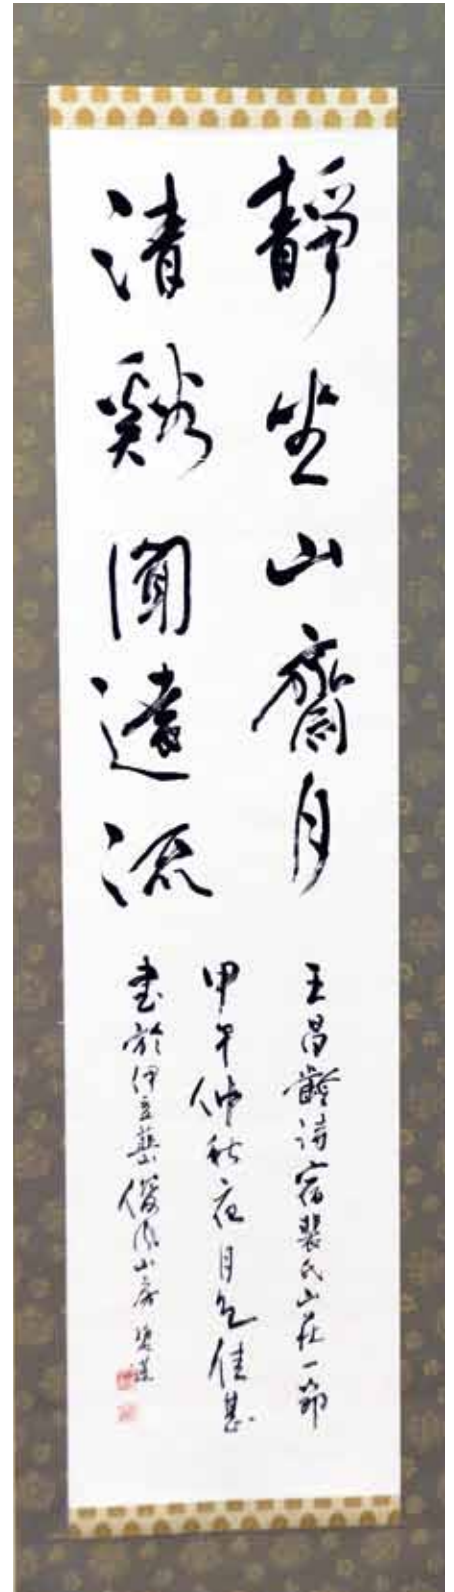 靜坐山齋月
清谿聞遠流
王昌齡詩宿裴氏山莊一節
甲午仲秋夜月色佳甚
書於伊豆
山房